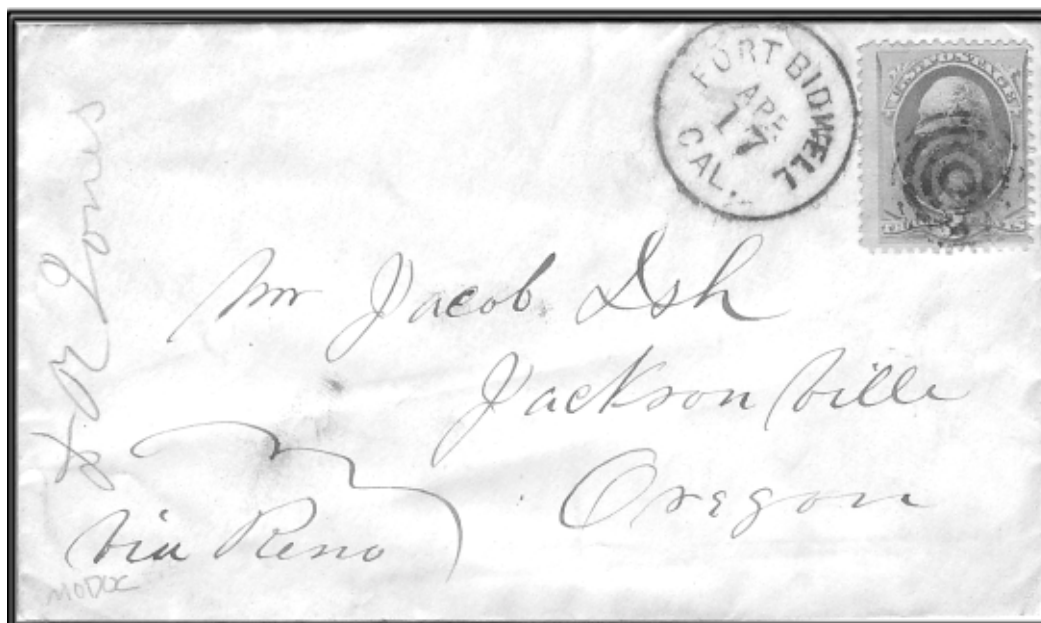 FORT BIDWELL
APR
17
CAL.
U.S. POSTAGE
Mr Jacob Ish
Jacksonville
Oregon
via Reno
MODOC
Jones